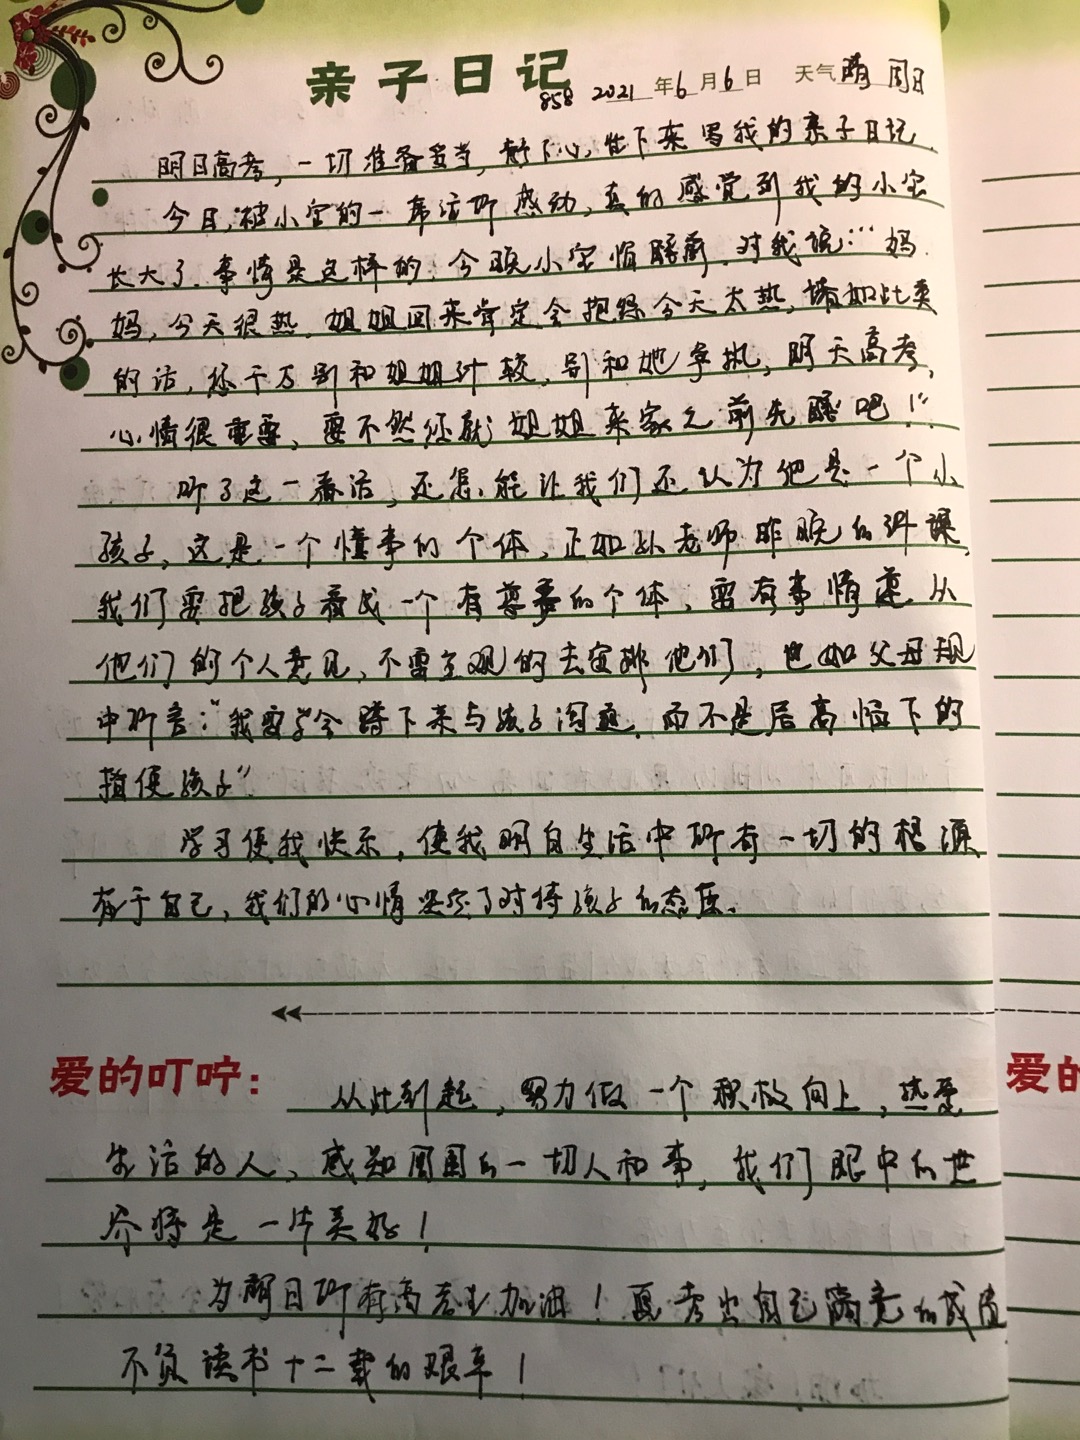 亲子日记
858 2021年6月6日 天气 晴 周日
明日高考,一切准备妥当,静下心,坐下来写我的亲子日记.
今日,被小宝的一席话所感动,真的感觉到我的小宝
长大了.事情是这样的.今晚小宝临睡前.对我说:"妈
妈,今天很热.姐姐回来肯定会抱怨今天太热,诸如此类
的话,您千万别和姐姐计较,别和她争执,明天高考,
心情很重要,要不然您就姐姐来家之前先睡吧!"
听了这一番话,还怎能让我们还认为他是一个小
孩子,这是一个懂事的个体,正如 老师昨晚的讲课,
我们要把孩子看成一个有尊重的个体,需有事情遵从
他们的个人意见,不要主观的去安排他们,也如父母规
中所言:"我要学会蹲下来与孩子沟通.而不是居高临下的
指使孩子".
学习使我快乐,使我明白生活中所有一切的根源
在于自己,我们的心情决定了对待孩子的态度.
爱的叮咛:
从此刻起,努力做一个积极向上,热爱
生活的人,感知周围的一切人和事,我们眼中的世
界将是一片美好!
为明日所有高考生加油!愿考出自己满意的成绩
不负读书十二载的艰辛!
爱的